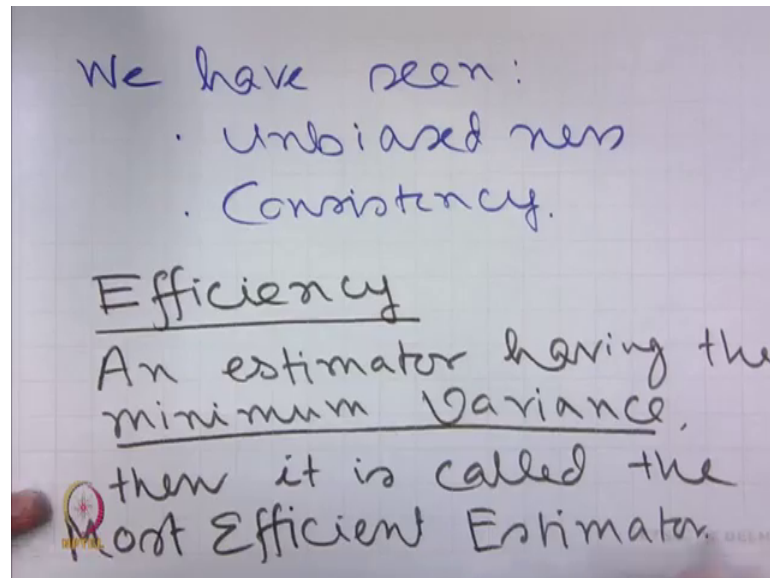 We have seen:
. Unbiased ness
. Consistency.
Efficiency
An estimator having the
minimum Variance,
then it is called the
Most Efficient Estimator.
NPTEL